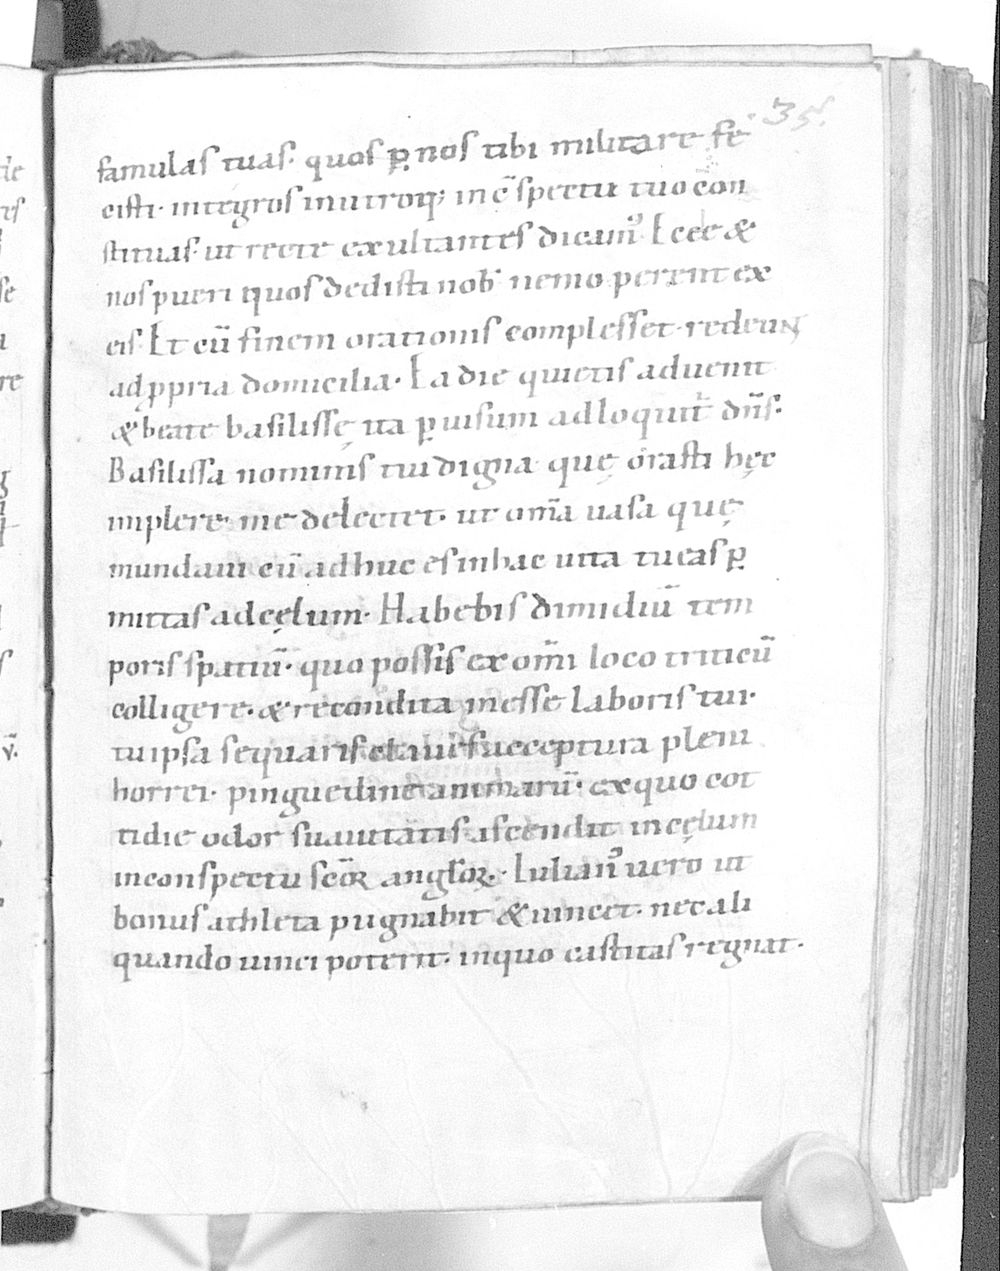 35.
famulas tuas· quos ꝑ nos tibi militare fe
cisti· integros inutroq; in c̄spectu tuo con
stituas· ut recte exultantes dicam᷒ Ecce &
nos pueri quos dedisti nob̄ nemo perent ex
eis. Et cū finem orationis complesset· redeunt
ad ꝓpria domicilia· Ea die quietis aduenit
& beate basilissę ita ꝑ uisum adloquit᷑ dn̄s·
Basilissa nominis tui digna quę orasti hęc
implere me delectet· ut om̄a uasa quę
mundaui cū adhuc es inhac uita tu eas ꝑ
mittas adcęlum· Habebis dimidiū tem
poris spatiū· quo possis ex om̄i loco triticū
colligere· & recondita messe laboris tui·
tu ipsa sequaris et aui succeptura pleni
horrei· pinguedine animarū· ex quo cot
tidie odor suauitatis ascendit in cęlum
in conspectu sc̄oꝝ angl̄oꝝ· Iulian᷒ uero ut
bonus athleta pugnabit & uincet· nec ali
quando uinci poterit· inquo castitas regnat·